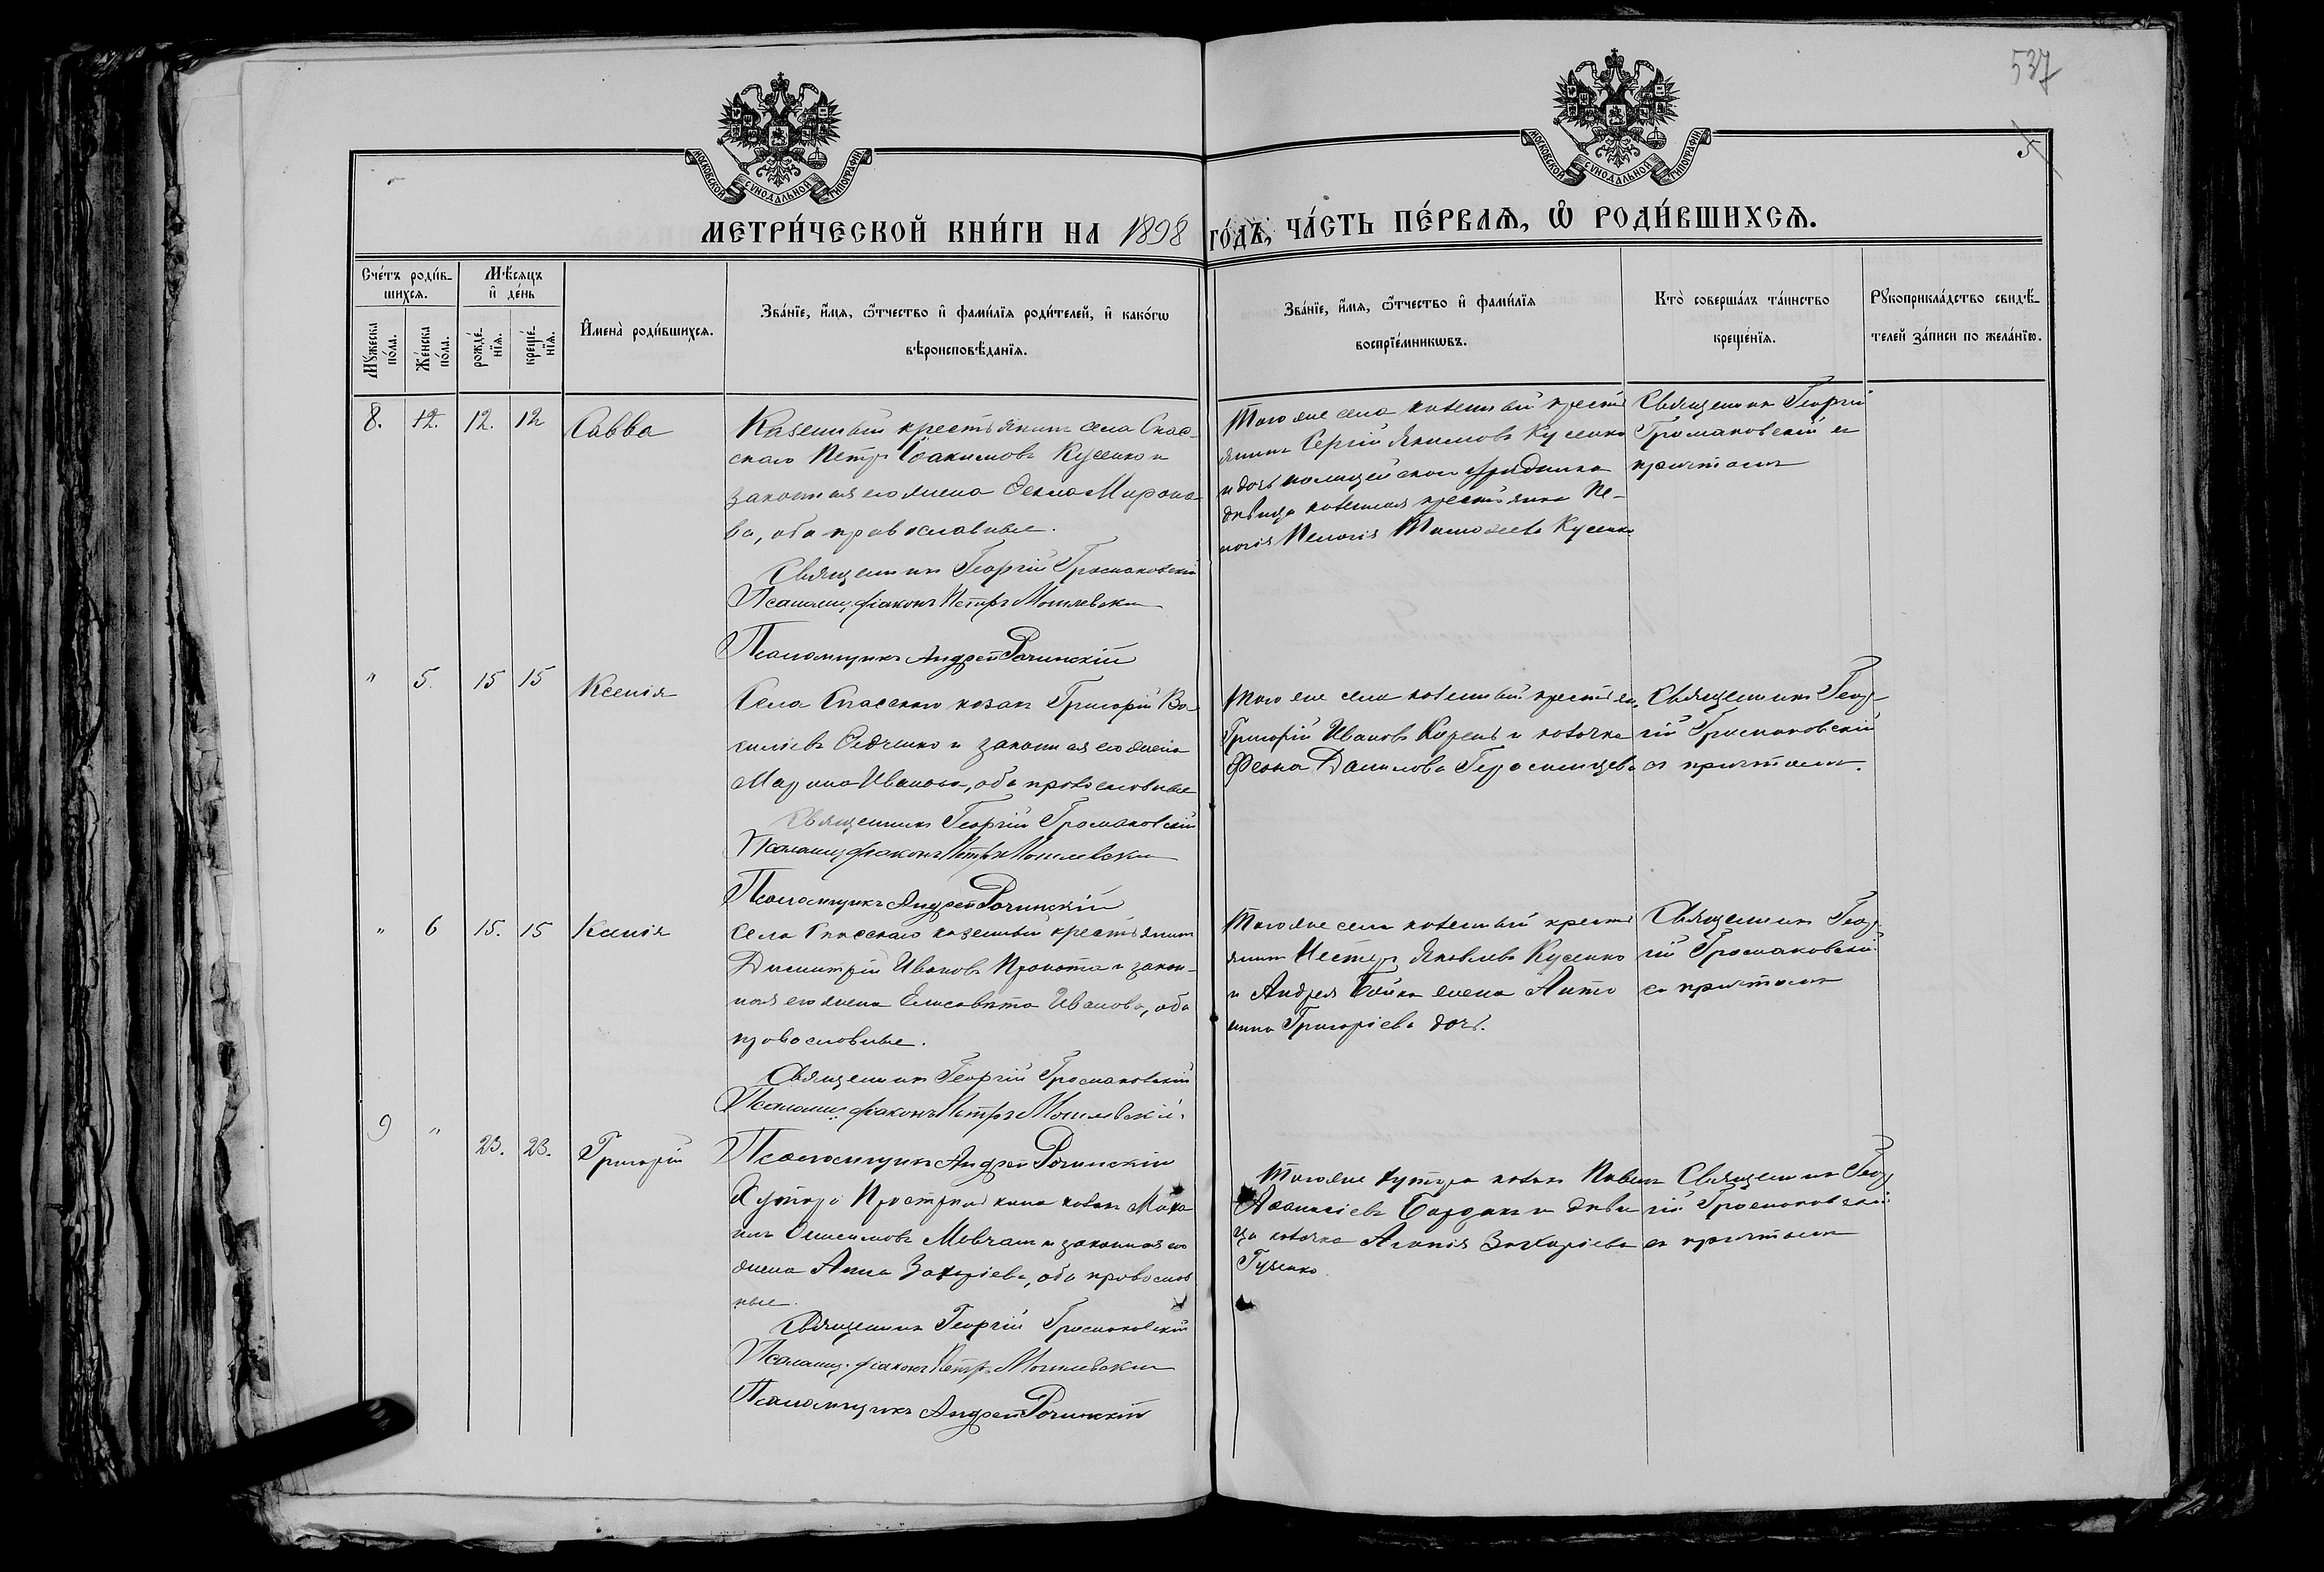 537
5
МОСКОВСКОЙ СѴНОДАЛЬНОЙ ТИПОГРАФІИ
МОСКОВСКОЙ СѴНОДАЛЬНОЙ ТИПОГРАФІИ
МЕТРИ́ЧЕСКОЙ КНИ́ГИ НА 1898 ГО́ДЪ, ЧА́СТЬ ПЕ́РВАѦ, Ѡ҆ РОДИ́ВШИХСѦ.
Сче́тъ роди́в-
шихсѧ.
Мꙋ́жеска по́ла.
Же́нска по́ла.
Мѣ́сѧцъ
и҆ де́нь
рожде́-
нїѧ.
креще́-
нїѧ.
И҆мена̀ роди́вшихсѧ.
Зва́нїе, и҆́мѧ, ѻ҆́тчество и҆ фами́лїѧ роди́телей, и҆ како́гѡ
вѣроисповѣ́данїѧ.
Зва́нїе, и҆́мѧ, ѻ҆́тчество и҆ фами́лїѧ
воспрїе́мникѡвъ.
Кто̀ соверша́лъ та́инство
креще́нїѧ.
Рꙋкоприкла́дство свидѣ́-
телей за́писи по жела́нїю.
8. 12. 12. 12 Савва
Казенный крестьянинъ села Спас-
скаго Петръ Іоакимовъ Куценко и
законная его жена Фекла Миронова-
ва, оба православные.
Священникъ Георгій Громаковскій
Псаломщ. діаконъ Петръ Могилевскій
Псаломщикъ Андрей Рочинскій
Того же села казенный крестья
янинъ Сергій Якимовъ Куценко
и дочь полицейскаго урядника
дѣвица казенная крестьянка Пе-
лагія Тимофеева Куценко
Священникъ Георгій
Громаковскій съ
причтомъ
" 5. 15 15 Ксенія
Села Спасскаго козакъ Григорій Ва-
силіевъ Федченко и законная его жена
Марина Иванова, оба православные
Священникъ Георгій Громаковскій
Псаломщ. діаконъ Петръ Могилевскій
Псаломщикъ Андрей Рочинскій
Того же села казенный крестьян.
Григорій Ивановъ Корень и козачка
Фекла Данилова Герасимцева
Священникъ Геор-
гій Громаковскій
съ причтомъ.
" 6 15. 15 Ксенія
Села Спасскаго казенный крестьянинъ
Димитрій Ивановъ Прокота и закон-
ная его жена Елисавета Иванова, оба
православные.
Священникъ Георгій Громаковскій
Псаломщ. діаконъ Петръ Могилевскій.
Псаломщикъ Андрей Рочинскій
Того же села казенный крестья
янинъ Несторъ Яковлевъ Куценко
и Андрея Бойка жена Анто
нина Григоріева дочь.
Священникъ Геор-
гій Громаковскій
съ причтомъ
9 " 23. 23. Григорій
Хутора козакъ
Онисимовъ Мовчанъ и законная его
жена Анна Захаріева, оба православ
ные.
Священникъ Георгій Громаковскій
Псаломщ. діаконъ Петръ Могилевскій
Псаломщикъ Андрей Рочинскій
Того же хутора козакъ Павелъ
Афанасіевъ и дѣви
ца козачка Агапія Захаріева
Гуженко
Священникъ Геор
гій Громаковскій
съ причтомъ